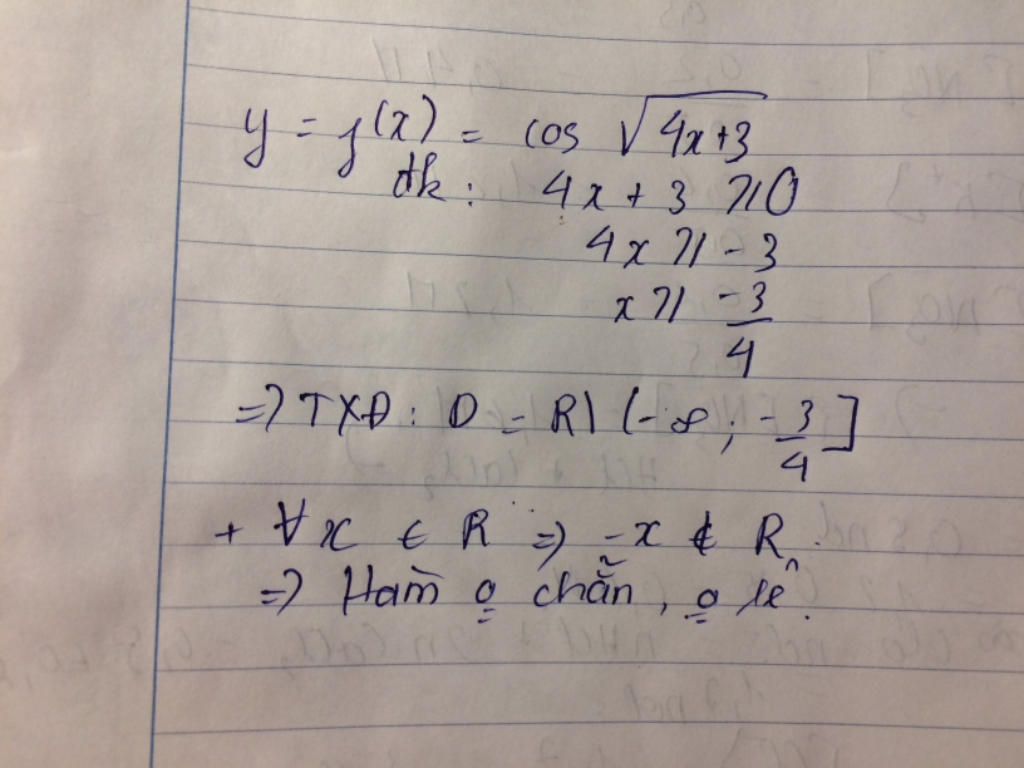 y = f(x) = cos √(4x+3)
đk: 4x + 3 ≥ 0
4x ≥ -3
x ≥ -3/4
=> TXĐ: D = R\ (-∞; -3/4]
+ ∀x ∈ R => -x ∉ R.
=> Hàm o chẵn, o lẻ.